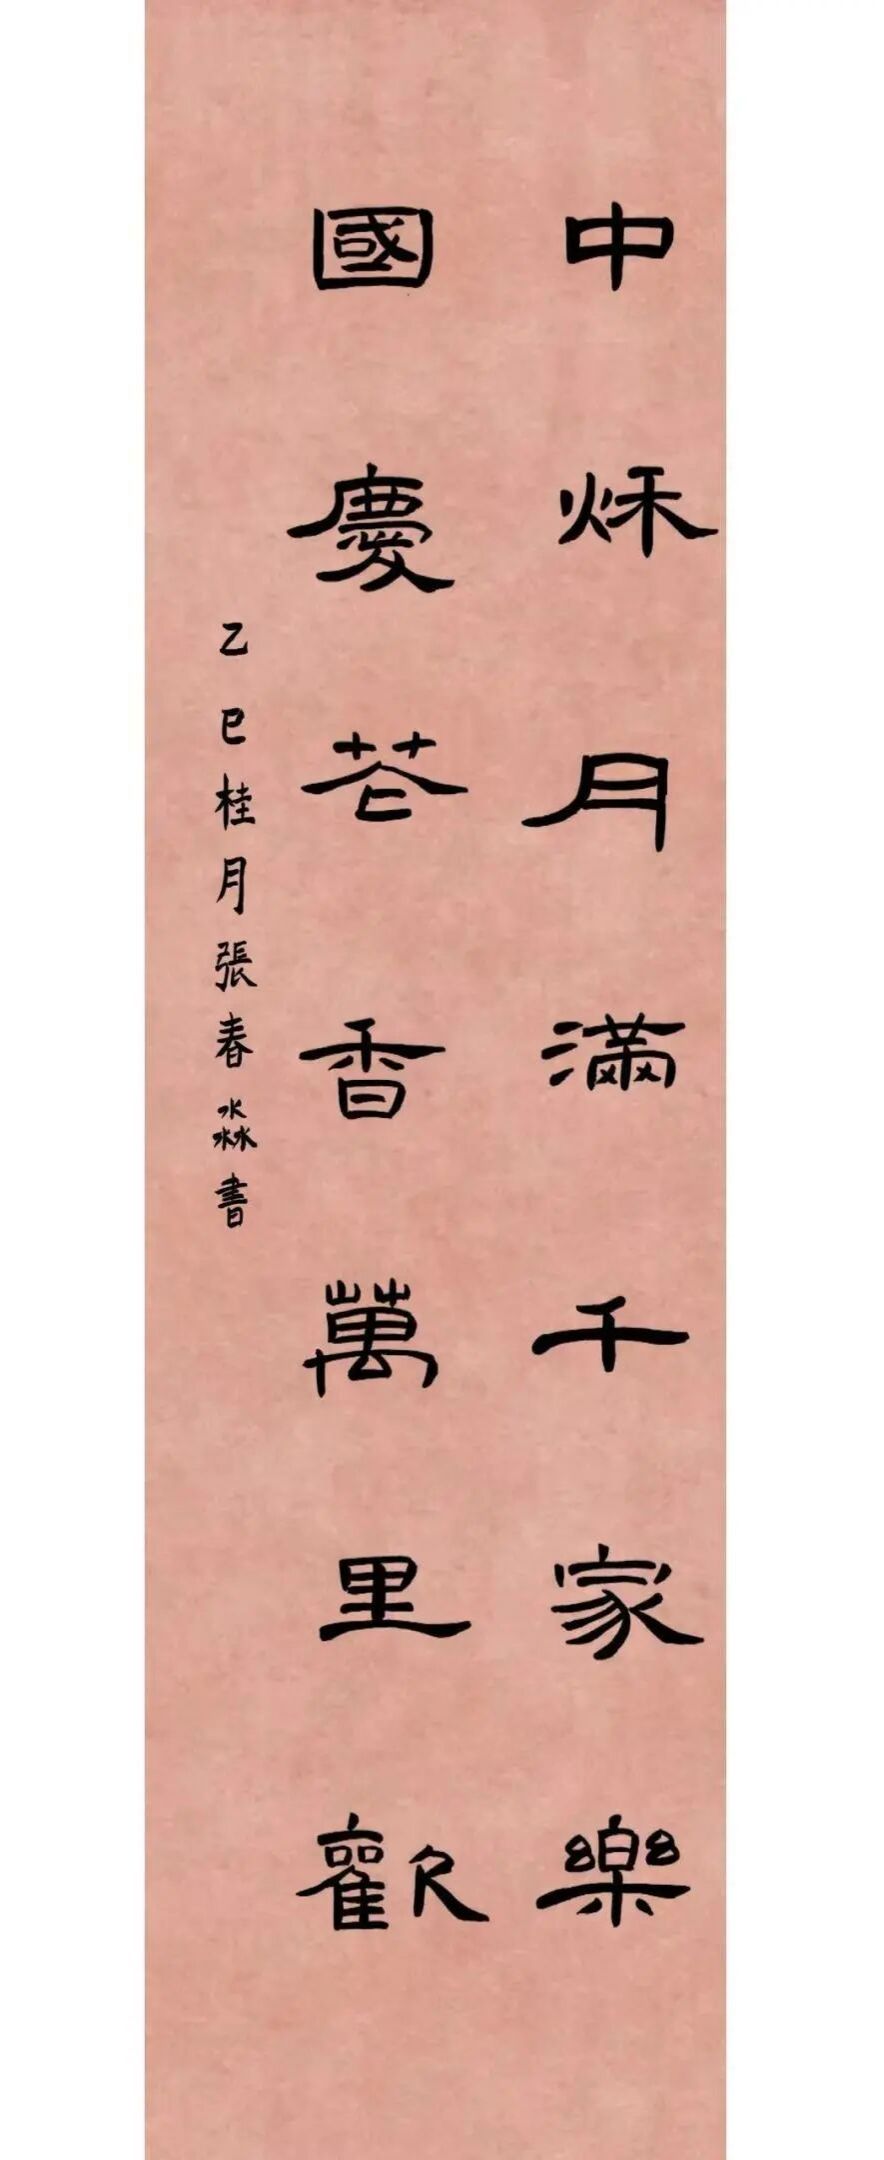 中秌月滿千家樂
國慶花香萬里歡
乙巳桂月張春淼書